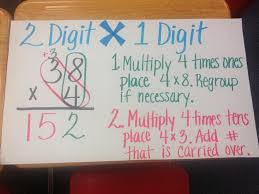 2 Digit X 1 Digit
+3
38
x 4
152
1. Multiply 4 times ones
place 4x8. Regroup
if necessary.
2. Multiply 4 times tens
place 4x3. Add #
that is carried over.